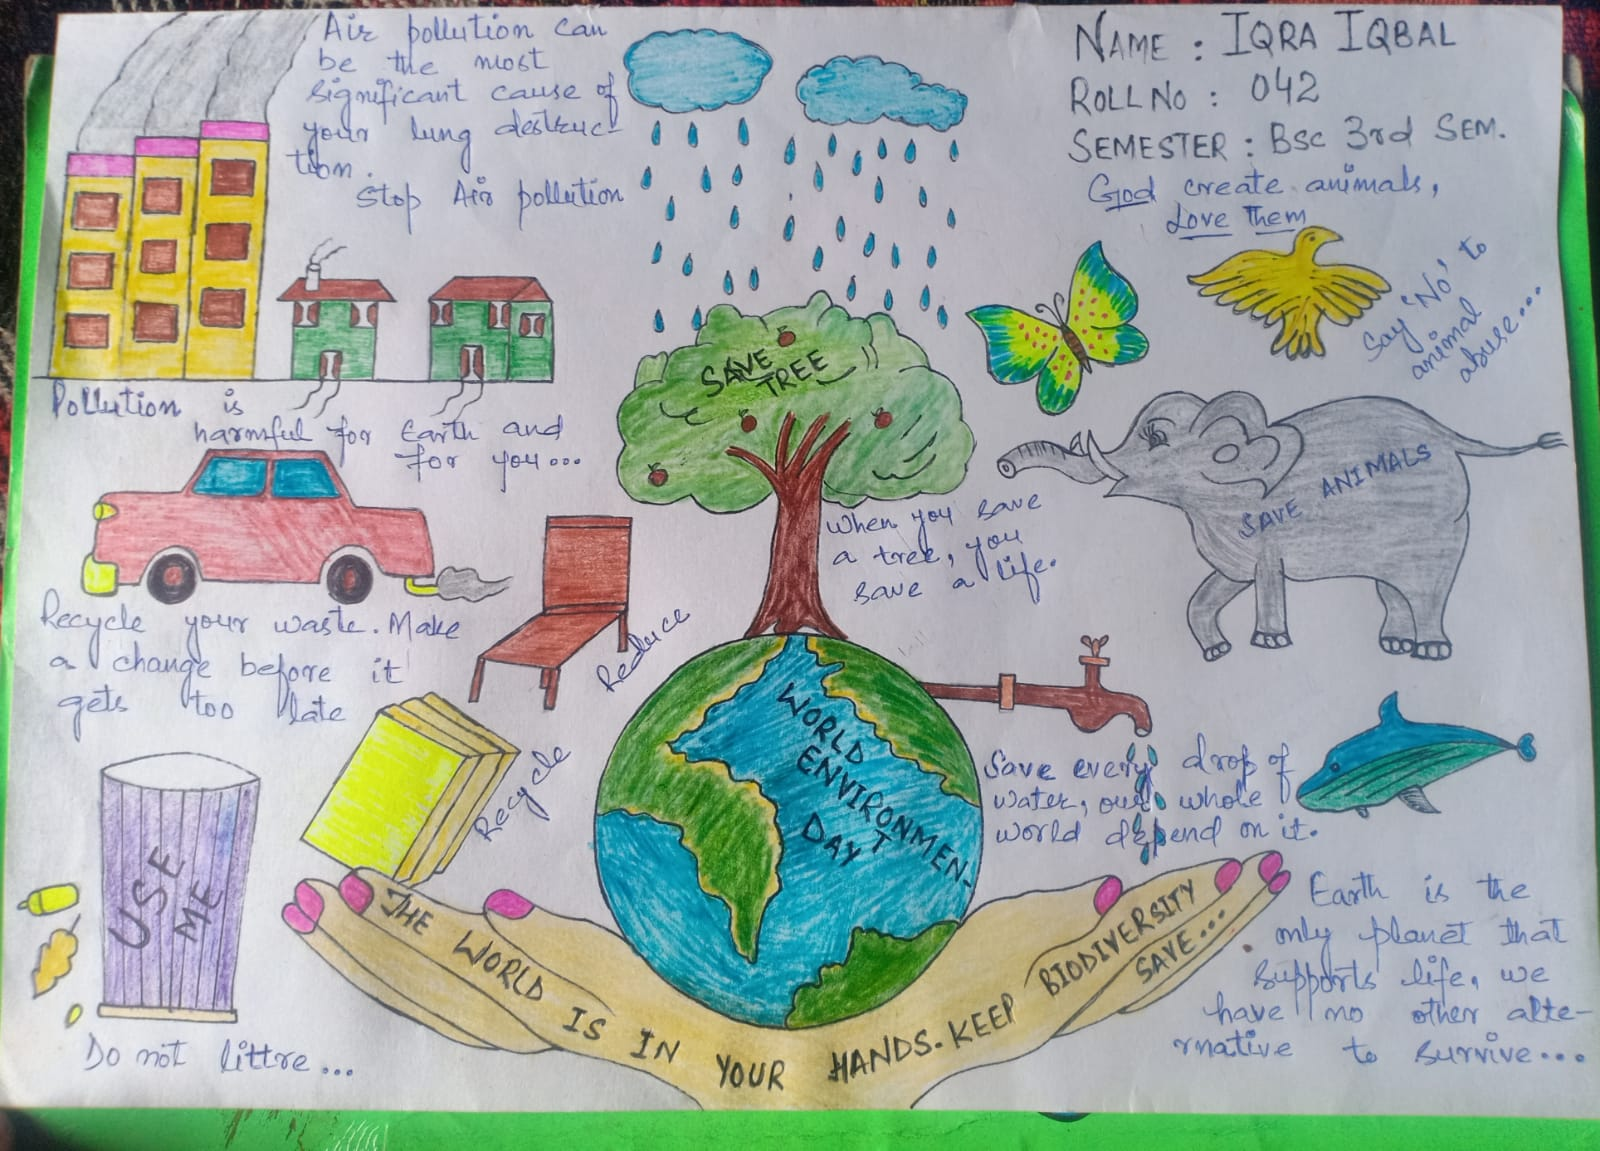 Air pollution can
be the most
significant cause of
your lung destruc-
tion.
Stop Air pollution
NAME : IQRA IQBAL
ROLL NO : 042
SEMESTER : BSc 3rd SEM.
God create animals,
Love them
Say 'No' to
animal
abuse...
SAVE
TREE
Pollution is
harmful for Earth and
for you...
SAVE ANIMALS
When you save
a tree, you
save a life.
Recycle your waste. Make
a change before it
gets too late
Reduce
Recycle
WORLD
ENVIRONMEN-
T
DAY
Save every drop of
water, our whole
world depend on it.
USE
ME
Do not littre...
THE WORLD IS IN YOUR HANDS. KEEP BIODIVERSITY
SAVE...
Earth is the
only planet that
supports life, we
have no other alte-
rnative to survive...